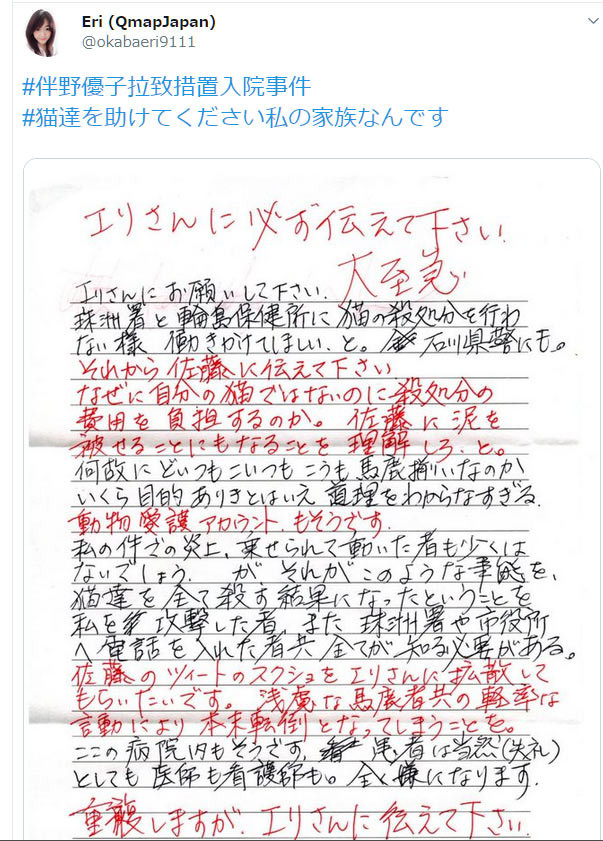 Eri (QmapJapan)
@okabaeri9111
#伴野優子拉致措置入院事件
#猫達を助けてください私の家族なんです
エリさんに必ず伝えて下さい
大至急
エリさんにお願いして下さい.
珠洲署と輪島保健所に猫の殺処分を行わ
ない様 働きかけてほしい、と。 石川県警にも。
それから佐藤に伝えて下さい
なぜに自分の猫ではないのに殺処分の
費用を負担するのか。佐藤に泥を
被せることにもなることを理解しろ、と。
何故にどいつもこいつもこうも馬鹿揃いなのか
いくら目的ありきとはいえ 道理をわからなすぎる
動物愛護アカウント、もそうです.
私の件での炎上、乗せられて動いた者も少くは
ないでしょう. が それがこのような事態を、
猫達を全て殺す結果になったということを
私を攻撃した者、また 珠洲署や市役所
へ電話を入れた者共 全てが 知る必要がある。
佐藤のツィートのスクショをエリさんに拡散して
もらいたいです。浅慮な馬鹿者共の軽率な
言動により 本末転倒となってしまうことを。
ここの病院内もそうです、患者は当然(失礼)
としても 医師も看護師も。全く嫌になります.
重複しますが、エリさんに伝えて下さい.